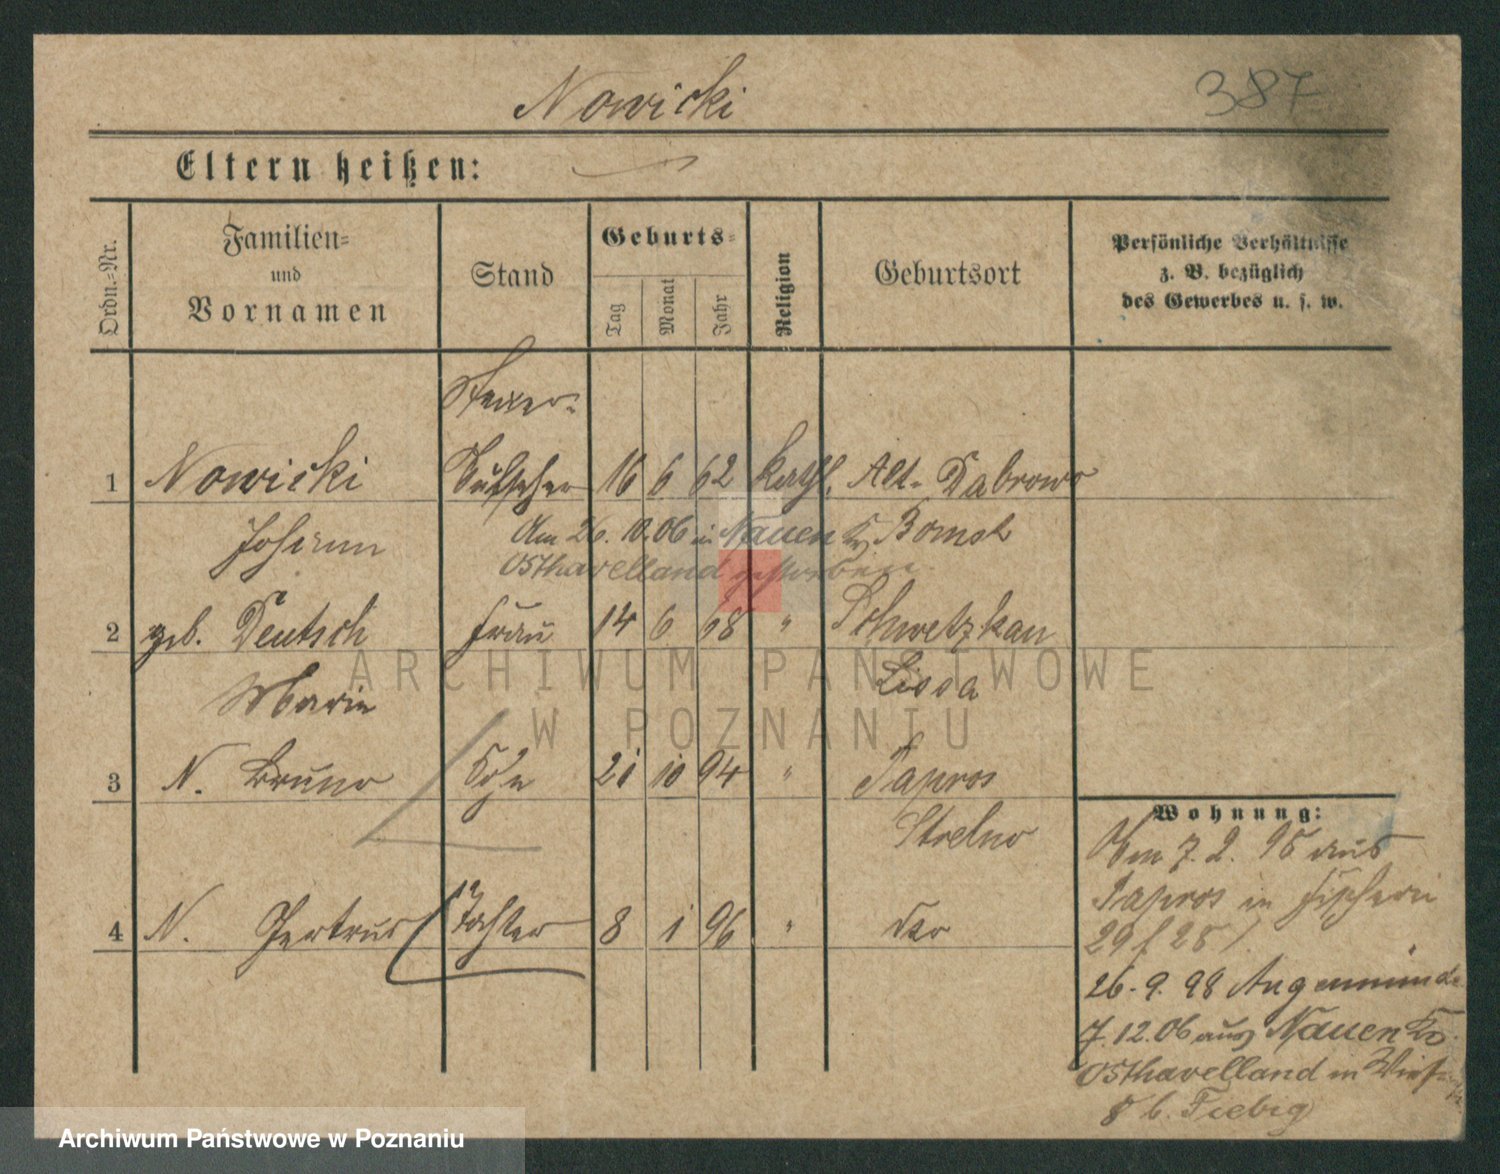 Nowicki
387
Eltern heißen:
Ordn.-Nr.
Familien-
und
Vornamen
Stand
Geburts-
Tag
Monat
Jahr
Religion
Geburtsort
Persönliche Verhältnisse
z. B. bezüglich
des Gewerbes u. s. w.
1 Nowicki 16 6 62 kath. Alt-Dabrowo
Johann
Am 26.10.06 in Nauen Kr. Bomst
Osthavelland gestorben
2 geb. Deutsch Frau 14 6 68 " Schwetzkau
Marie Lissa
3 N. Bruno Sohn 21 10 94 " Papros
Strelno
4 N. Gertrud Tochter 8 1 96 " dto
Wohnung:
Vom 7.2.96 aus
Papros in Fischerei
29 f 28
26.9.98 Angermünde
7.12.06 aus Nauen Kr.
Osthavelland in
8 b. Fiebig
ARCHIWUM PAŃSTWOWE
W POZNANIU
Archiwum Państwowe w Poznaniu